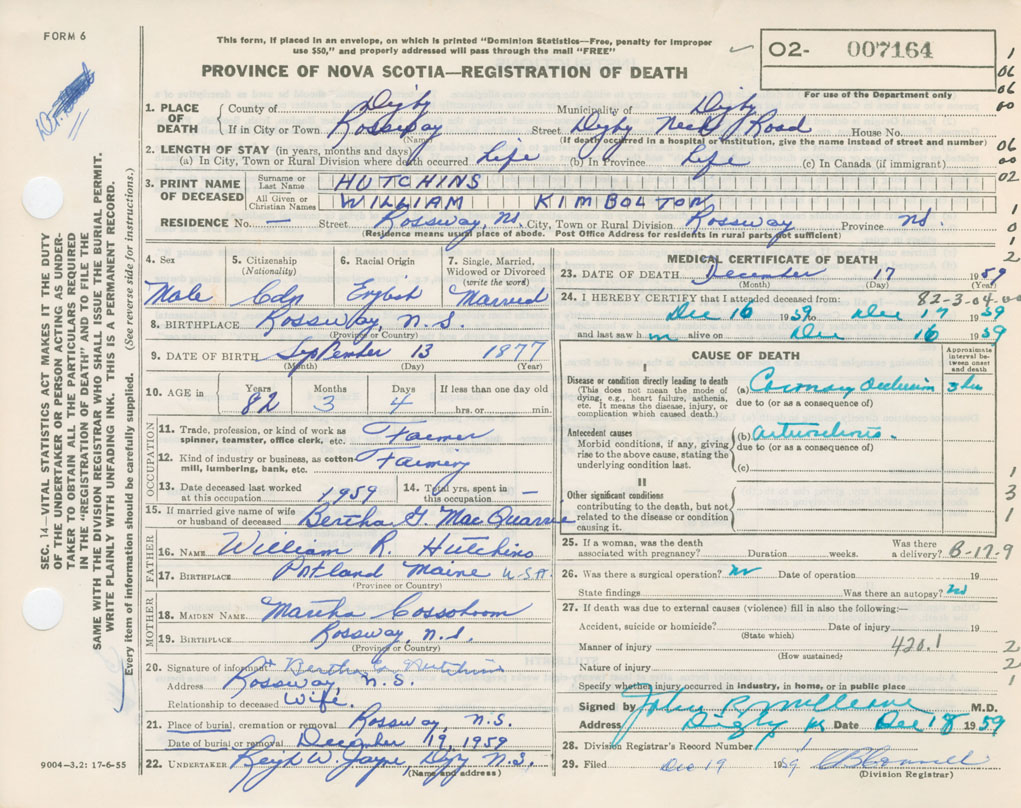 FORM 6
This form, if placed in an envelope, on which is printed "Dominion Statistics—Free, penalty for improper
use $50," and properly addressed will pass through the mail "FREE"
PROVINCE OF NOVA SCOTIA—REGISTRATION OF DEATH
O2- 007164
For use of the Department only
1. PLACE OF DEATH
County of Digby Municipality of Digby
If in City or Town Rossway Street Digby Neck Road House No.
(Name) (If death occurred in a hospital or institution, give the name instead of street and number)
2. LENGTH OF STAY (in years, months and days)
(a) In City, Town or Rural Division where death occurred Life (b) In Province Life (c) In Canada (if immigrant)
3. PRINT NAME OF DECEASED
Surname or Last Name HUTCHINS
All Given or Christian Names WILLIAM KIMBOLTON
RESIDENCE No. — Street Rossway, NS. City, Town or Rural Division Rossway Province NS.
(Residence means usual place of abode. Post Office Address for residents in rural parts not sufficient)
4. Sex
Male
5. Citizenship
(Nationality)
Cdn
6. Racial Origin
English
7. Single, Married,
Widowed or Divorced
(write the word)
Married
8. BIRTHPLACE Rossway, N.S.
(Province or Country)
9. DATE OF BIRTH September 13 1877
(Month) (Day) (Year)
10. AGE in
Years Months Days If less than one day old
82 3 4 hrs. or min.
OCCUPATION
11. Trade, profession, or kind of work as
spinner, teamster, office clerk, etc. Farmer
12. Kind of industry or business, as cotton
mill, lumbering, bank, etc. Farming
13. Date deceased last worked
at this occupation 1959
14. Total yrs. spent in
this occupation —
15. If married give name of wife
or husband of deceased Bertha G. MacQuarrie
FATHER
16. NAME William R. Hutchins
17. BIRTHPLACE Portland Maine U.S.A.
(Province or Country)
MOTHER
18. MAIDEN NAME Martha Cossoboom
19. BIRTHPLACE Rossway, N.S.
(Province or Country)
20. Signature of informant Bertha G Hutchins
Address Rossway N.S.
Relationship to deceased Wife.
21. Place of burial, cremation or removal Rossway N.S.
Date of burial or removal December 19, 1959
22. UNDERTAKER W. Jayne, Digby N.S.
(Name and address)
MEDICAL CERTIFICATE OF DEATH
23. DATE OF DEATH December 17 1959
(Month) (Day) (Year)
24. I HEREBY CERTIFY that I attended deceased from: 82-3-04-00
Dec 16 1959 to Dec 17 1959
and last saw h m alive on Dec 16 1959
CAUSE OF DEATH
Approximate
interval be-
tween onset
and death
I
Disease or condition directly leading to death
(This does not mean the mode of
dying, e.g., heart failure, asthenia,
etc. It means the disease, injury, or
complication which caused death.)
(a) Coronary Occlusion 3 hrs
due to (or as a consequence of)
Antecedent causes
Morbid conditions, if any, giving
rise to the above cause, stating the
underlying condition last.
(b)
due to (or as a consequence of)
(c)
II
Other significant conditions
contributing to the death, but not
related to the disease or condition
causing it.
25. If a woman, was the death
associated with pregnancy? Duration weeks. Was there
a delivery? B-17-9
26. Was there a surgical operation? no Date of operation 19
State findings Was there an autopsy? no
27. If death was due to external causes (violence) fill in also the following:—
Accident, suicide or homicide? Date of injury 19
(State which)
Manner of injury 420.1
(How sustained)
Nature of injury
Specify whether injury occurred in industry, in home, or in public place
Signed by John R. M.D.
Address Digby NS Date Dec 18 1959
28. Division Registrar's Record Number 1
29. Filed Dec 19 1959
(Division Registrar)
9004-3.2: 17-6-55
SEC. 14—VITAL STATISTICS ACT MAKES IT THE DUTY
OF THE UNDERTAKER OR PERSON ACTING AS UNDER-
TAKER TO OBTAIN ALL THE PARTICULARS REQUIRED
IN THE "REGISTRATION OF DEATH" AND TO FILE THE
SAME WITH THE DIVISION REGISTRAR WHO SHALL ISSUE THE BURIAL PERMIT.
WRITE PLAINLY WITH UNFADING INK. THIS IS A PERMANENT RECORD.
Every item of information should be carefully supplied. (See reverse side for instructions.)
1
06
06
00
06
00
02
1
0
1
2
1
3
1
2
2
1